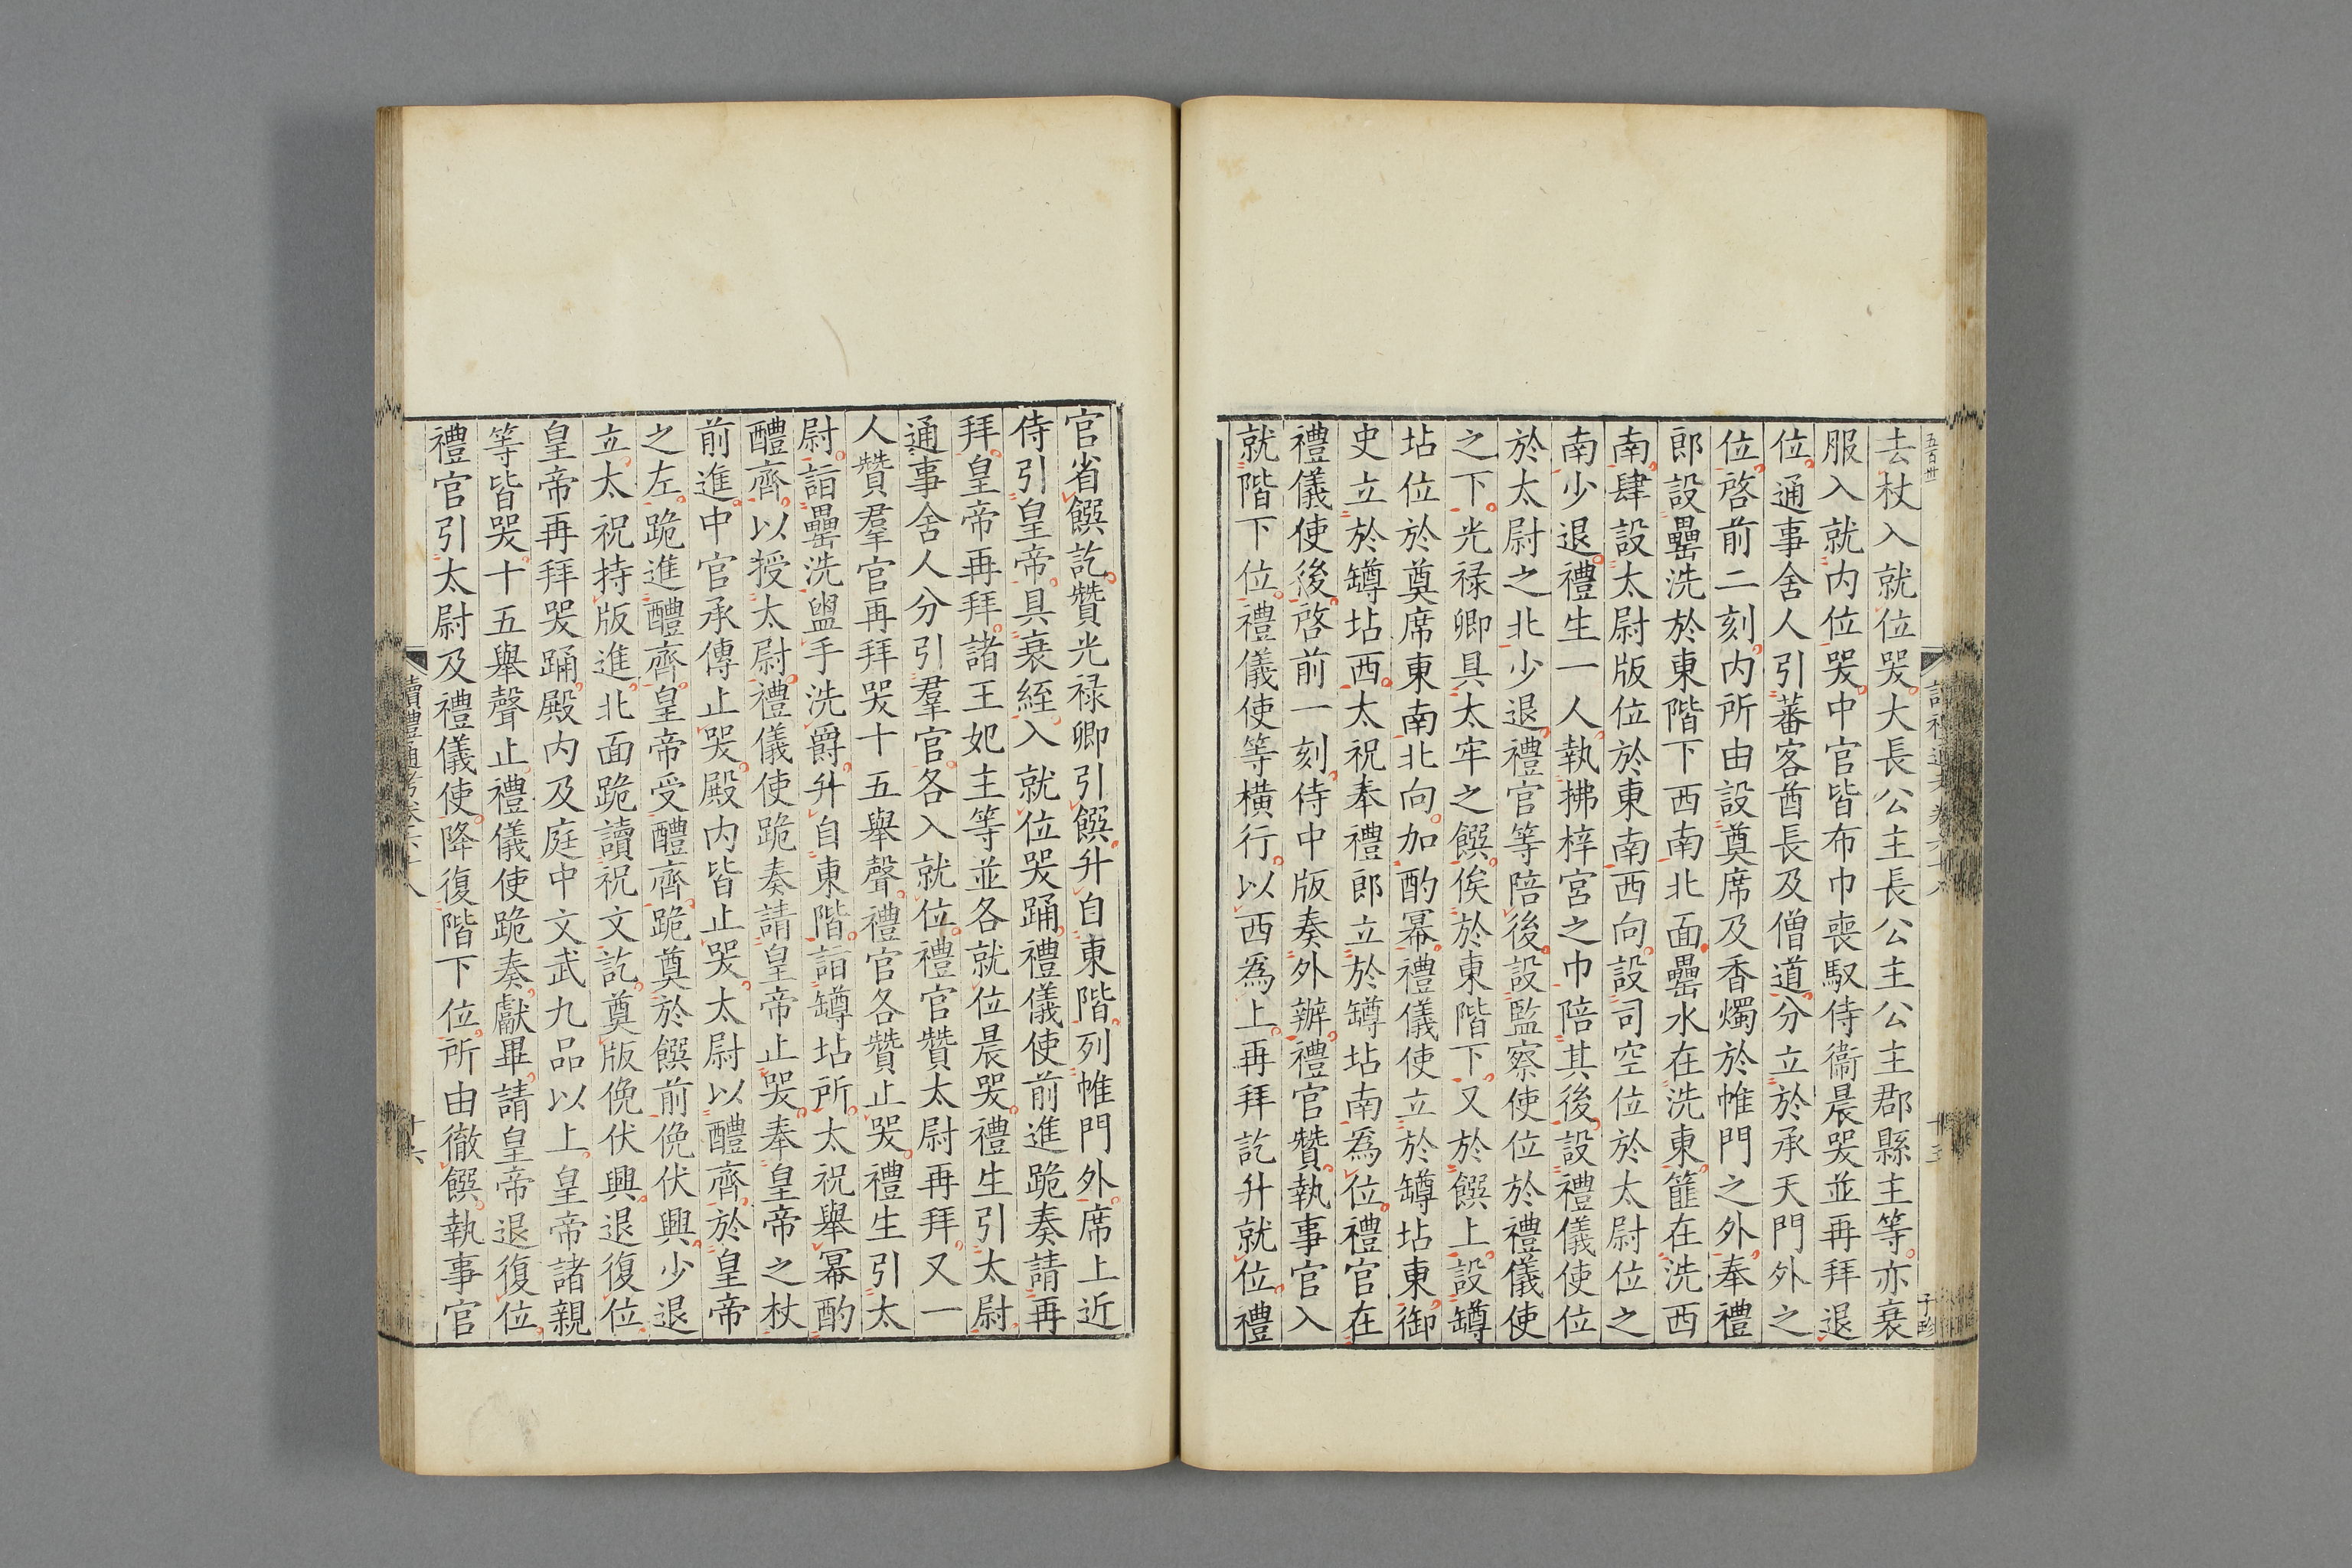 五百卅
去杖入就位哭大長公主長公主公主郡縣主等亦衰
服入就内位哭中官皆布巾喪馭侍衞晨哭並再拜退
位通事舍人引蕃客酋長及僧道分立於承天門外之
位啓前二刻内所由設奠席及香燭於帷門之外奉禮
郎設罍洗於東階下西南北面罍水在洗東篚在洗西
南肆設太尉版位於東南西向設司空位於太尉位之
南少退禮生一人執拂梓宮之巾陪其後設禮儀使位
於太尉之北少退禮官等陪後設監察使位於禮儀使
之下光祿卿具太牢之饌俟於東階下又於饌上設罇
坫位於奠席東南北向加酌冪禮儀使立於罇坫東御
史立於罇坫西太祝奉禮郎立於罇坫南爲位禮官在
禮儀使後啓前一刻侍中版奏外辦禮官贊執事官入
就階下位禮儀使等橫行以西爲上再拜訖升就位禮
官省饌訖贊光祿卿引饌升自東階列帷門外席上近
侍引皇帝具衰絰入就位哭踊禮儀使前進跪奏請再
拜皇帝再拜諸王妃主等並各就位晨哭禮生引太尉
通事舍人分引羣官各入就位禮官贊太尉再拜又一
人贊羣官再拜哭十五舉聲禮官各贊止哭禮生引太
尉詣罍洗盥手洗爵升自東階詣罇坫所太祝舉冪酌
醴齊以授太尉禮儀使跪奏請皇帝止哭奉皇帝之杖
前進中官承傳止哭殿内皆止哭太尉以醴齊於皇帝
之左跪進醴齊皇帝受醴齊跪奠於饌前俛伏興少退
立太祝持版進北面跪讀祝文訖奠版俛伏興退復位
皇帝再拜哭踊殿内及庭中文武九品以上皇帝諸親
等皆哭十五舉聲止禮儀使跪奏獻畢請皇帝退復位
禮官引太尉及禮儀使降復階下位所由徹饌執事官
讀禮通考卷六十八
十六